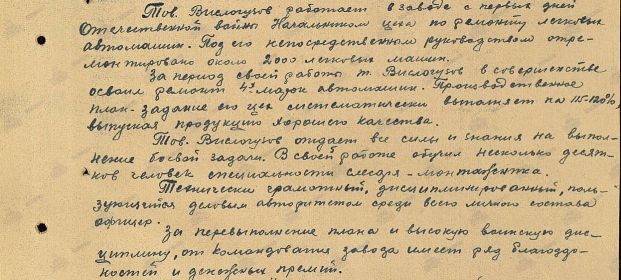 Тов. Вислогузов работает в заводе с первых дней
Отечественной войны Начальником цеха по ремонту легковых
автомашин. Под его непосредственным руководством отре-
монтировано около 2000 легковых машин.
За период своей работы т. Вислогузов в совершенстве
освоил ремонт 43 марок автомашин. Производственное
план-задание его цех систематически выполняет на 115-120%,
выпуская продукцию хорошего качества.
Тов. Вислогузов отдает все силы и знания на выпол-
нение боевой задачи. В своей работе обучил несколько десят-
ков человек специальности слесаря-монтажника.
Технически грамотный, дисциплинированный, поль-
зующийся деловым авторитетом среди всего личного состава
офицер.
За перевыполнение плана и высокую воинскую дис-
циплину, от командования завода имеет ряд благодар-
ностей и денежных премий.